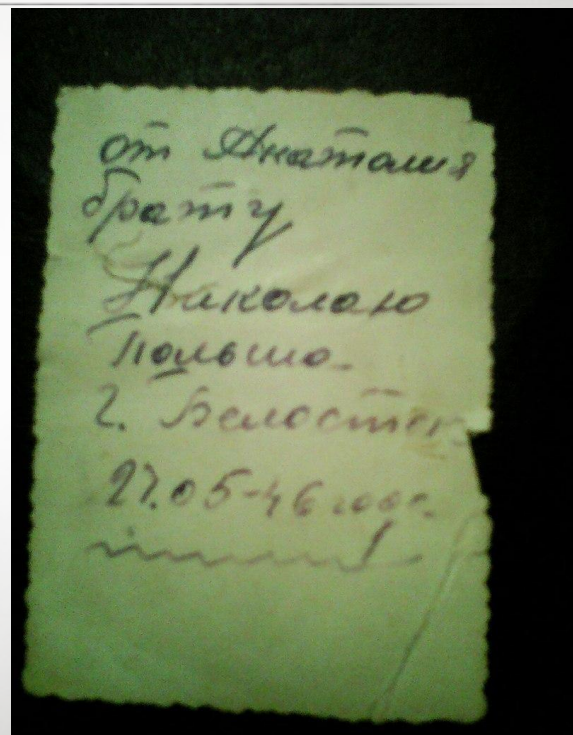 от Анатолия
брату
Николаю
Польша
г. Белосток
27.05-46 года